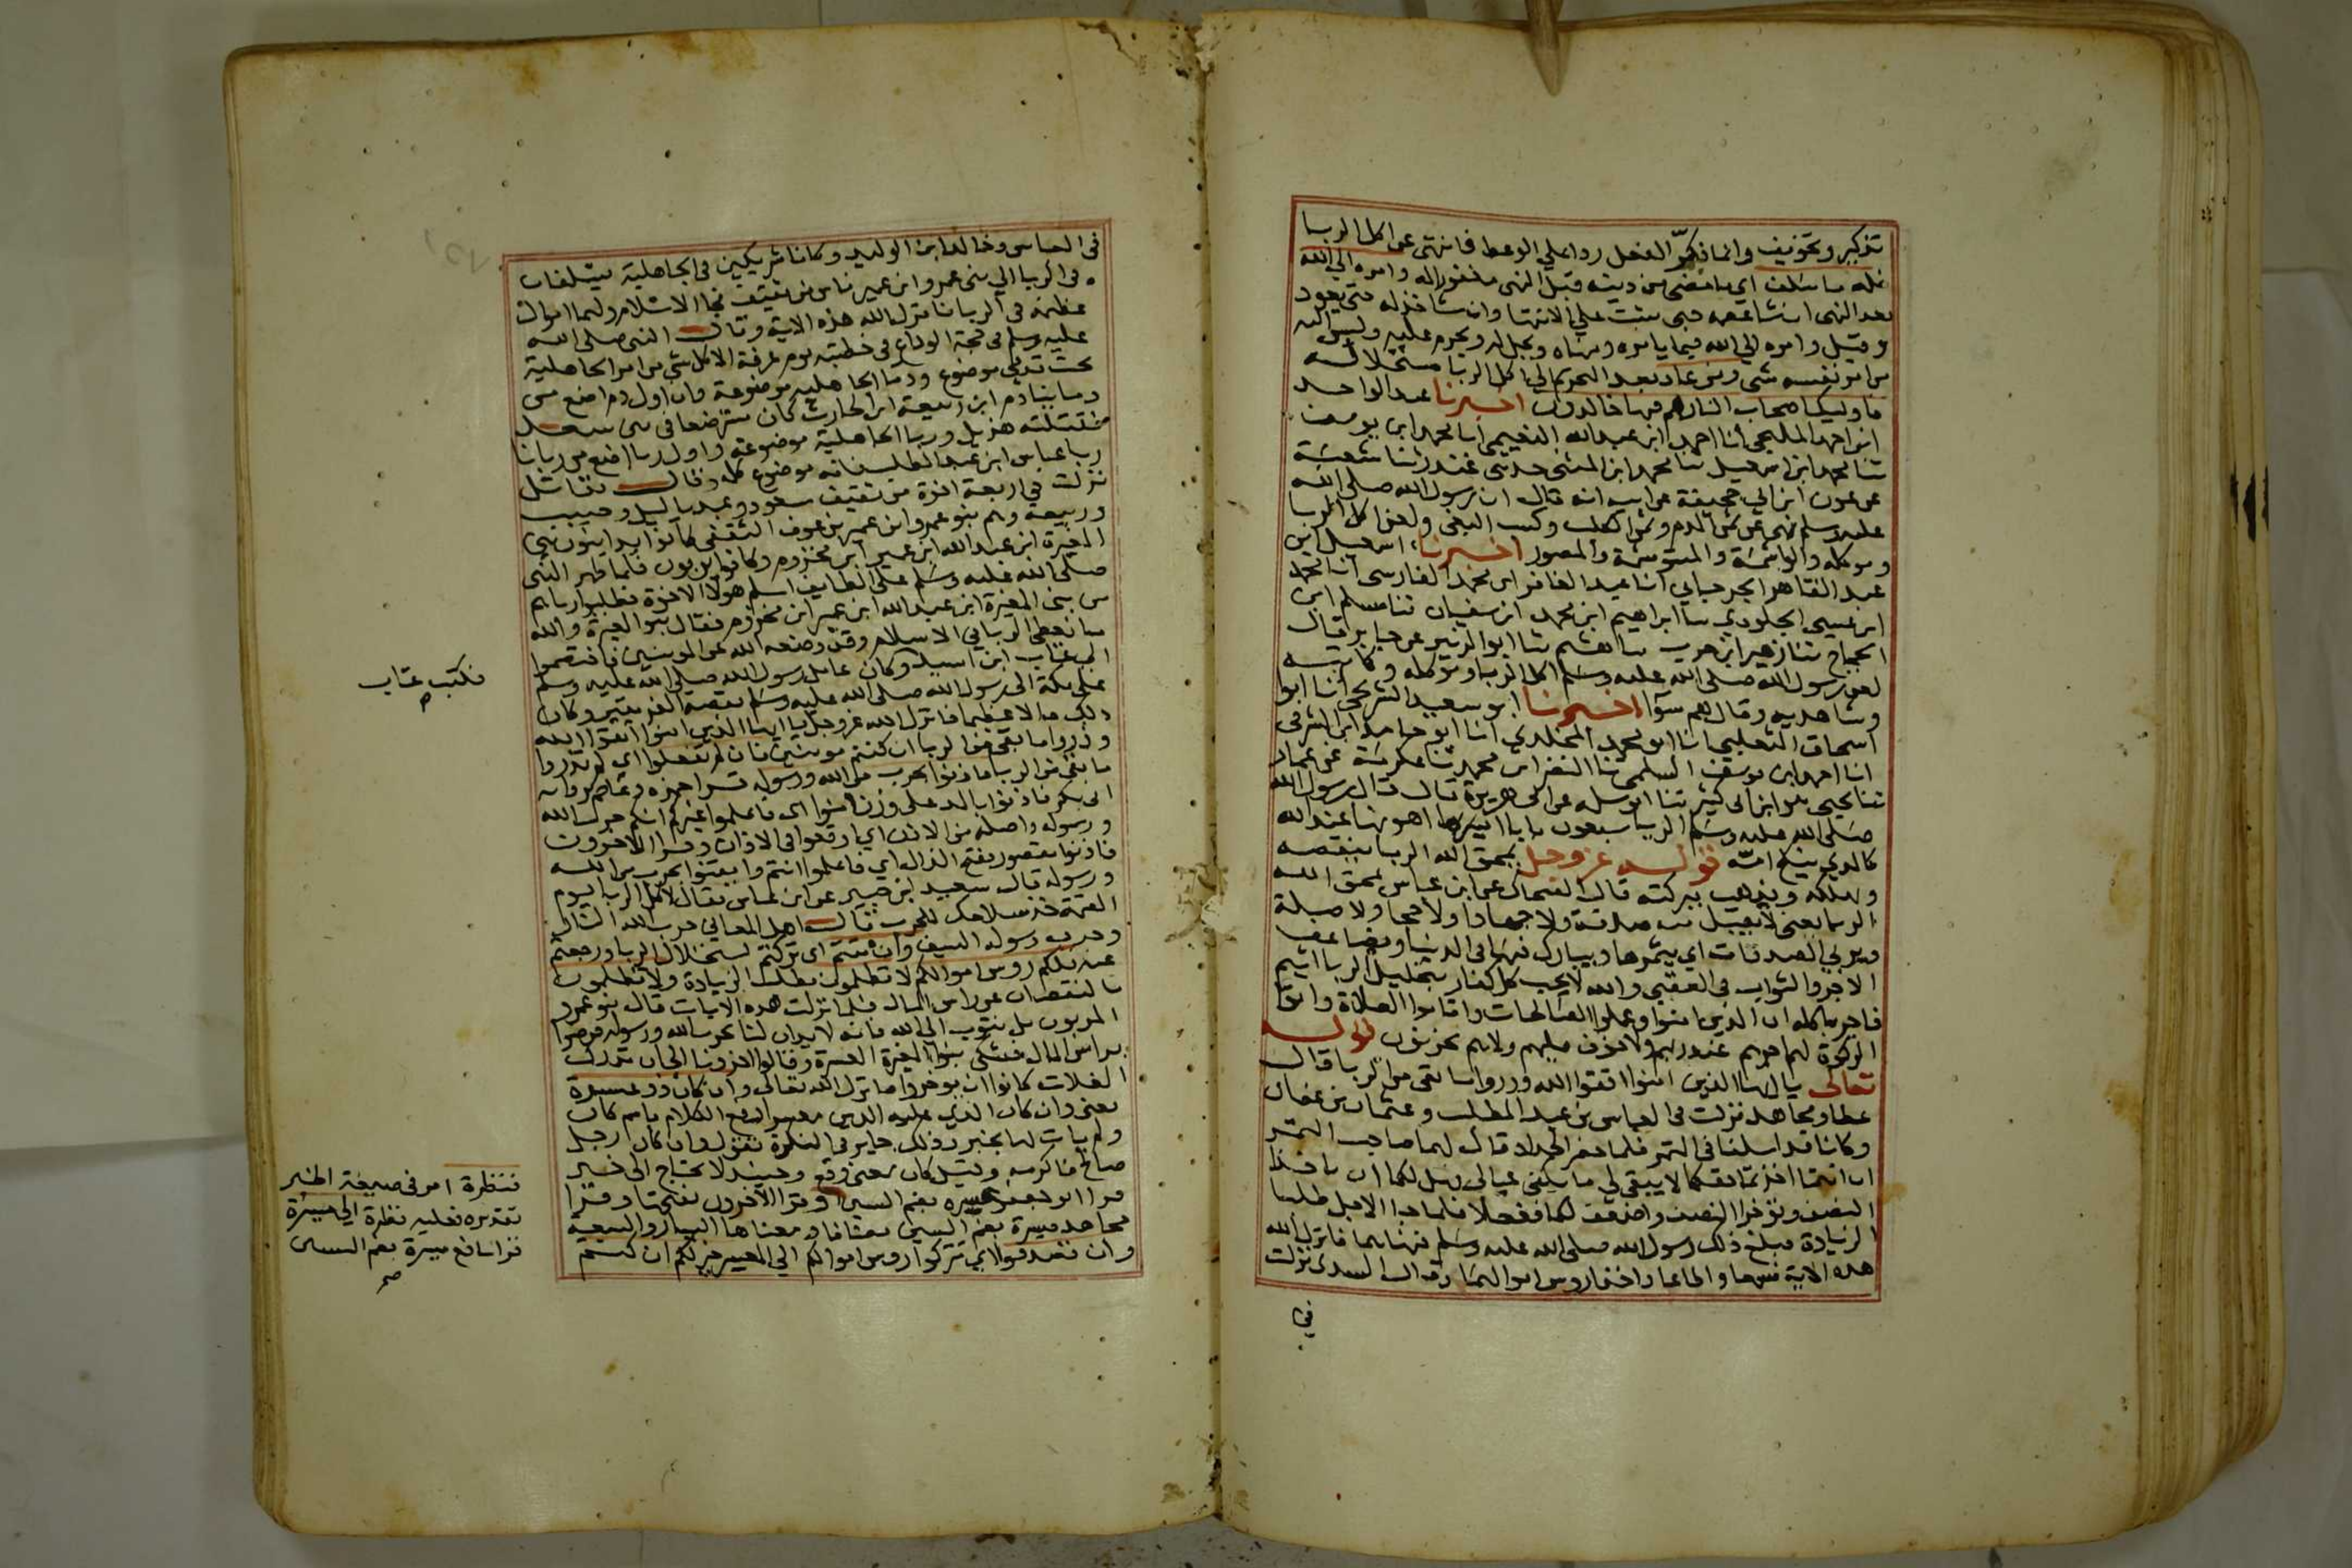 تذكير وتخويف وانما ذكر الفعل ردا علي الوعظ فانتهى عن اكل الربا
فله ما سلف اي ما مضى من ذنبه قبل النهى مغفور له وامره الي الله
بعد النهى ان شا عصمه حتى يثبت علي الانتها وان شا خذله حتى يعود
وقيل وامره الي الله فيما يامره وينهاه ويحل له ويحرم عليه وليس اليه
من امر نفسه شى ومن عاد بعد التحريم الي اكل الربا مستحلا له
فاوليك اصحاب النار هم فيها خالدون اخبرنا عبد الواحد
ابن احمد المليحى انا احمد ابن عبد الله النعيمى انا محمد ابن يوسف
ثنا محمد ابن اسمعيل ثنا محمد ابن المثنى حدثنى غندر ثنا شعبة
عن عون ابن ابي جحيفة عن ابيه انه قال ان رسول الله صلى الله
عليه وسلم نهى عن ثمن الدم وثمن الكلب وكسب البغى ولعن اكل الربا
وموكله والواشمة والمستوشمة والمصور اخبرنا اسمعيل ابن
عبد القاهر الجرجاني انا عبد الغافر ابن محمد الفارسى انا محمد
ابن عيسى الجلودي ثنا ابراهيم ابن محمد ابن سفيان ثنا مسلم ابن
الحجاج ثنا زهير ابن حرب ثنا هشيم ثنا ابوا الزبير عن جابر قال
لعن رسول الله صلى الله عليه وسلم اكل الربا وموكله وكاتبه
وشاهديه وقال هم سوا اخبرنا ابو سعيد الشريحى انا ابوا
اسحاق الثعلبى انا ابو محمد المخلدي انا ابو حامد ابن الشرقى
انا احمد ابن يوسف السلمى ثنا النضر ابن محمد ثنا عكرمة عن عمار
ثنا يحيى هو ابن ابى كثير ثنا ابو سلمه عن ابى هريرة قال قال رسول الله
صلى الله عليه وسلم الربا سبعون بابا اهونها عند الله
كالذي ينكح امه قوله عز وجل يمحق الله الربا ينقصه
ويهلكه ويذهب ببركته قال الضحاك عن ابن عباس يمحق الله
الربا يعنى لا يقبل منه صدقة ولا جهادا ولا حجا ولا صلة
ويربي الصدقات اي يثمرها ويبارك فيها في الدنيا ويضاعف
الاجر والثواب فى العقبى والله لا يحب كل كفار بتحليل الربا اثيم
فاجر باكله ان الذين امنوا وعملوا الصالحات واقاموا الصلاة واتوا
الزكوة لهم اجرهم عند ربهم ولا خوف عليهم ولا هم يحزنون قوله
تعالى يا ايها الذين امنوا اتقوا الله وذروا ما بقى من الربا قال
عطا ومجاهد نزلت فى العباس بن عبد المطلب وعثمان بن عفان
وكانا قد اسلفا في التمر فلما حضر الجداد قال لهما صاحب التمر
ان انتما اخذتما حقكما لا يبقى لي ما يكفى عيالى فهل لكما ان تاخذا
النصف وتؤخرا النصف واضعف لكما ففعلا فلما حل الاجل طلبا
الزيادة فبلغ ذلك رسول الله صلى الله عليه وسلم فنهاهما فانزل الله
هذه الاية فسمعا واطاعا واخذا روس اموالهما وقال السدى نزلت
في
فى العباس وخالد ابن الوليد وكانا شريكين فى الجاهلية يسلفان
فى الربا الي بنى عمرو ابن عمير ناس من ثقيف فجا الاسلام ولهما اموال
عظيمة فى الربا فانزل الله هذه الاية وقال النبى صلى الله
عليه وسلم فى حجة الوداع فى خطبته يوم عرفة الا كل شى من امر الجاهلية
تحت قدمى موضوع ودما الجاهلية موضوعة وان اول دم اضع من
دماينا دم ابن ربيعة ابن الحارث كان مسترضعا فى بنى سعد
فقتلته هذيل وربا الجاهلية موضوعة واول ربا اضع من ربانا
ربا عباس ابن عبد المطلب فانه موضوع كله وقال مقاتل
نزلت في اربعة اخوة من ثقيف مسعود وعبد ياليل وحبيب
وربيعة وهم بنو عمرو ابن عمير بن عوف الثقفى كانوا يداينون بنى
المغيرة ابن عبد الله ابن عمير ابن مخزوم وكانوا يربون فلما ظهر النبى
صلى الله عليه وسلم على الطايف اسلم هولا الاخوة فطلبوا رباهم
من بنى المغيرة ابن عبد الله ابن عمير ابن مخزوم فقال بنو المغيرة والله
ما نعطى الربا في الاسلام وقد وضعه الله عن المومنين فاختصموا
الي عتاب ابن اسيد وكان عامل رسول الله صلى الله عليه وسلم
على مكة الى رسول الله صلى الله عليه وسلم بقصة الفريقين وكان
ذلك مالا عظيما فانزل الله عز وجل يا ايها الذين امنوا اتقوا الله
وذروا ما بقى من الربا ان كنتم مومنين فان لم تفعلوا اى لم تذروا
ما بقى من الربا فاذنوا بحرب من الله ورسوله قرا حمزه وعاصم برواية
ابى بكر فاذنوا بالمد على وزن امنوا اى فاعلموا غيركم انكم حرب لله
ورسوله واصله من الاذن اي اوقعوا في الاذان وقرا الاخرون
فاذنوا مقصور بفتح الذال اي فاعلموا انتم وايقنوا بحرب من الله
ورسوله قال سعيد ابن جبير عن ابن عباس يقال لاكل الربا يوم
القيمة خذ سلاحك للحرب قال اهل المعانى حرب الله النار
وحرب رسوله السيف وان تبتم اى تركتم استحلال الربا ورجعتم
عنه فلكم روس اموالكم لا تظلمون بطلب الزيادة ولا تظلمون
بالنقصان عن راس المال فلما نزلت هذه الايات قال بنو عمرو
المربون بل نتوب الي الله فانه لا يدان لنا بحرب الله ورسوله فرضوا
براس المال فشكى بنوا المغيرة العسرة وقالوا اخرونا الي ان تدرك
الغلات كانوا ان يوخروا فانزل الله تعالى وان كان ذو عسرة
يعنى وان كان الذي عليه الدين معسرا رفع الكلام باسم كان
ولم يات لها بخبر وذلك جايز في النكرة تقول وان كان رجل
صالح فاكرمه وقيل كان بمعنى وقع وحينيذ لا يحتاج الى خبر
قرا ابو جعفر عسره بضم السين وقرا الاخرون وقرا
مجاهد ميسرة بضم السين مضافا ومعناها اليسار والسعة
وان تصدقوا اي تتركوا روس اموالكم الي المعسر خير لكم ان كنتم
فكتب عتاب
فنظرة امر فى صيغة الخبر
تقديره فعليه نظرة الي ميسرة
قرا نافع ميسرة بضم السين
صح